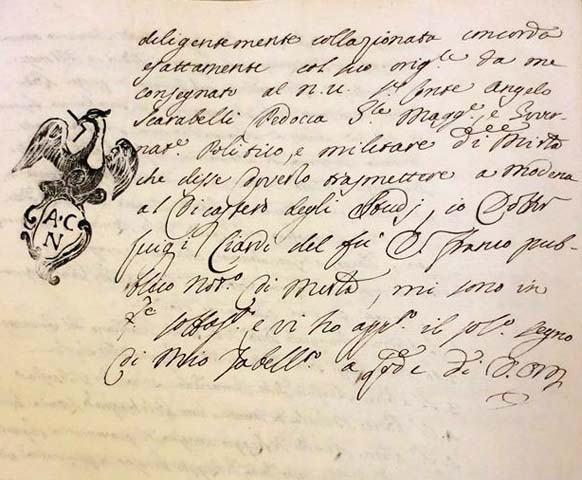 diligentemente collazionata concorda
esattamente col suo orig.le da me
consegnato al n. u. Sig.r Conte Angelo
Scarabelli Pedocca Magg.e, e Gover-
nat.e Politico, e militare di
che disse doverlo trasmettere a Modena
al Dicastero degli Studj, io Dott.r
Luigi Ciardi del fu S. Franco pub-
blico Not.o di, mi sono in
sottos.to e vi ho app.to il sol.o segno
di Mio Tabell.to a Gode di
A·C
N